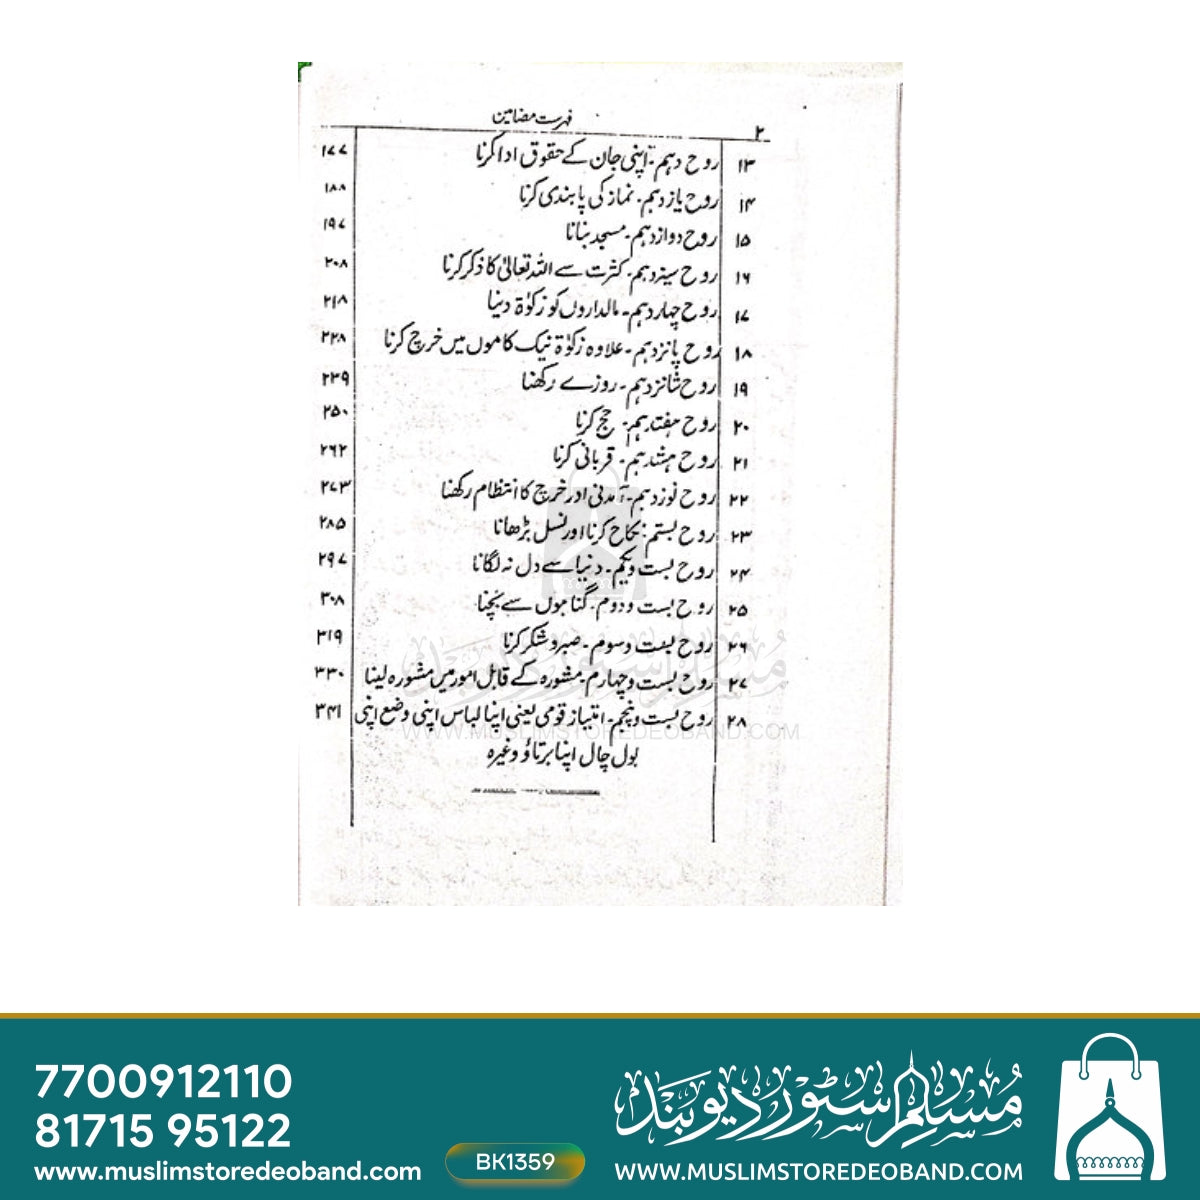 ۲ فہرست مضامین
۱۳ روح دہم۔ اپنی جان کے حقوق ادا کرنا ۱۷۷
۱۴ روح یازدہم۔ نماز کی پابندی کرنا ۱۸۸
۱۵ روح دوازدہم۔ مسجد بنانا ۱۹۷
۱۶ روح سیزدہم۔ کثرت سے اللہ تعالیٰ کا ذکر کرنا ۲۰۸
۱۷ روح چہاردہم۔ مالداروں کو زکوٰۃ دینا ۲۱۸
۱۸ روح پانزدہم۔ علاوہ زکوٰۃ نیک کاموں میں خرچ کرنا ۲۲۸
۱۹ روح شانزدہم۔ روزے رکھنا ۲۳۹
۲۰ روح ہفتدہم۔ حج کرنا ۲۵۰
۲۱ روح ہشدہم۔ قربانی کرنا ۲۶۲
۲۲ روح نوزدہم۔ آمدنی اور خرچ کا انتظام رکھنا ۲۷۳
۲۳ روح بستم: نکاح کرنا اور نسل بڑھانا ۲۸۵
۲۴ روح بست ویکم۔ دنیا سے دل نہ لگانا ۲۹۷
۲۵ روح بست و دوم۔ گناہوں سے بچنا ۳۰۸
۲۶ روح بست وسوم۔ صبر و شکر کرنا ۳۱۹
۲۷ روح بست وچہارم۔ مشورہ کے قابل امور میں مشورہ لینا ۳۳۰
۲۸ روح بست وپنجم۔ امتیاز قومی یعنی اپنا لباس اپنی وضع اپنی ۳۴۱
بول چال اپنا برتاؤ وغیرہ
مسلم سٹور دیوبند
WWW.MUSLIMSTOREDEOBAND.COM
7700912110
81715 95122
www.muslimstoredeoband.com
BK1359
مسلم سٹور دیوبند
WWW.MUSLIMSTOREDEOBAND.COM